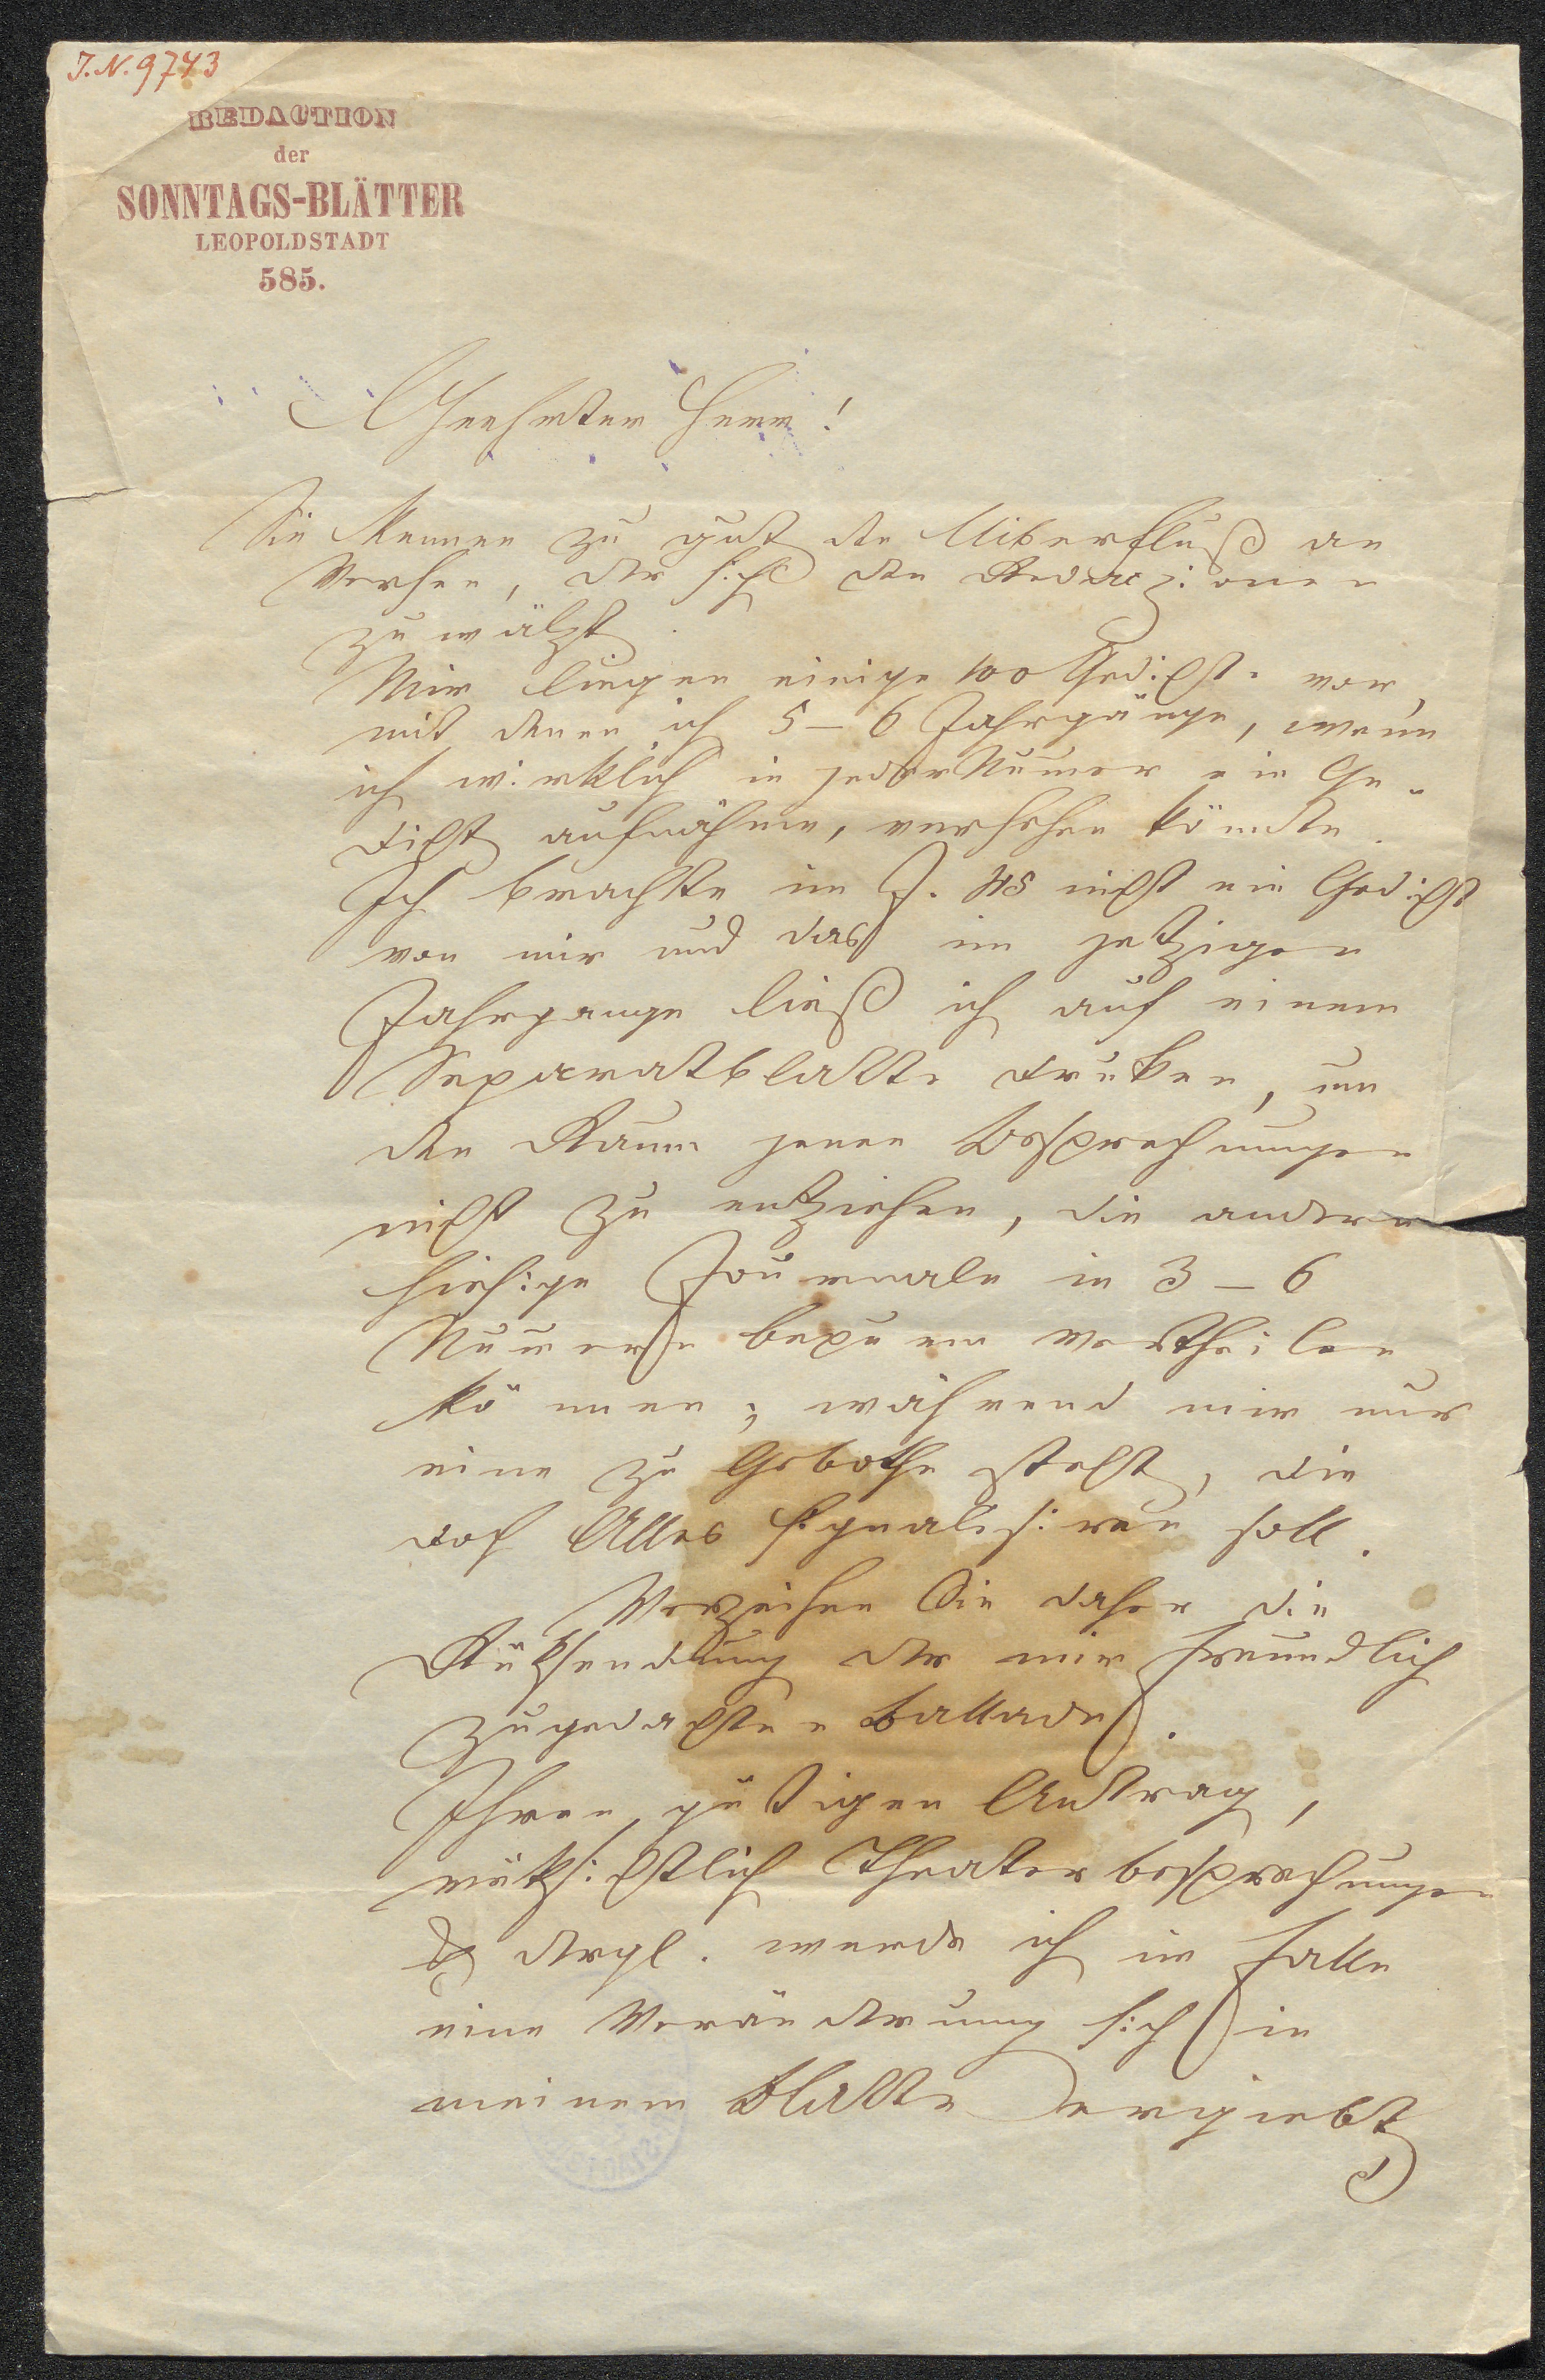 J.N. 9743
REDACTION
der
SONNTAGS-BLÄTTER
LEOPOLDSTADT
585.
Geehrter Herr!
Sie kennen zu gut den Uiberfluß an
Versen, der sich den Redaczionen
zu wälzt.
Mir liegen einige 100 Gedichte vor,
mit denen ich 5–6 Jahrgänge, wenn
ich wirklich in jeder Numer ein Ge-
dicht aufnähme, versehen könnte.
Ich brachte im J. 45 nicht ein Gedicht
von mir und das im jetzigen
Jahrgange ließ ich auf einem
Separatblatte druken, um
den Raum jenen Besprechungen
nicht zu entziehen, die andere
hiesige Journale in 3–6
Numern bequem vertheilen
können; während mir nur
eine zu Gebothe steht, die
doch Alles signalisiren soll.
Verzeihen Sie daher die
Rüksendung der mir freundlich
zugedachten Ballade.
Ihren gütigen Antrag,
rüksichtlich Theaterbesprechungen
& dergl. werde ich im Falle
eine Veränderung sich in
meinem Blatte ergiebt